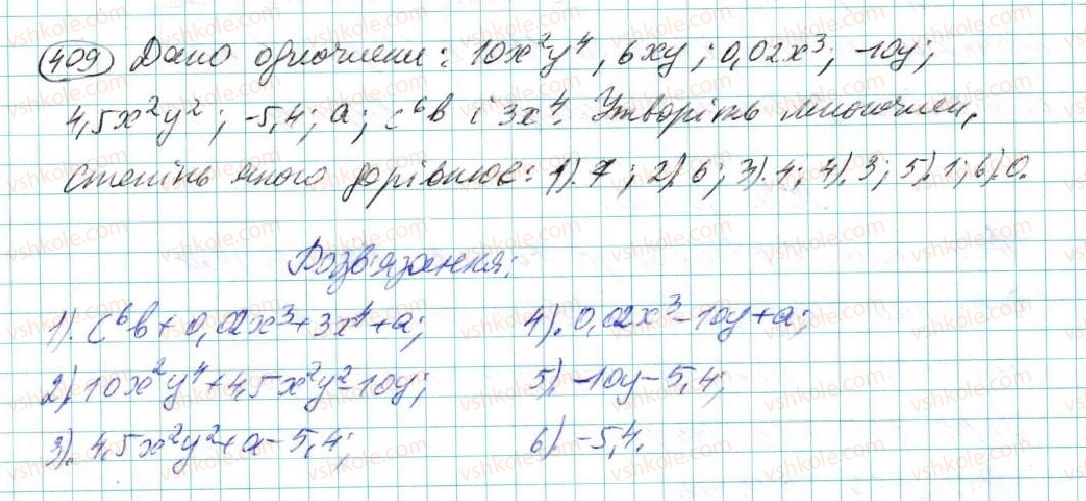 409 Дано одночлени: 10x²y⁴, 6xy; 0,02x³; -10y;
4,5x²y²; -5,4; a; c⁶b і 3x⁴. Утворіть многочлен,
степінь якого дорівнює: 1). 7; 2). 6; 3). 4; 4). 3; 5). 1; 6). 0.
Розв'язання:
1). c⁶b + 0,02x³ + 3x⁴ + a;
2). 10x²y⁴ + 4,5x²y² - 10y;
3). 4,5x²y² + a - 5,4;
4). 0,02x³ - 10y + a;
5). -10y - 5,4;
6). -5,4.